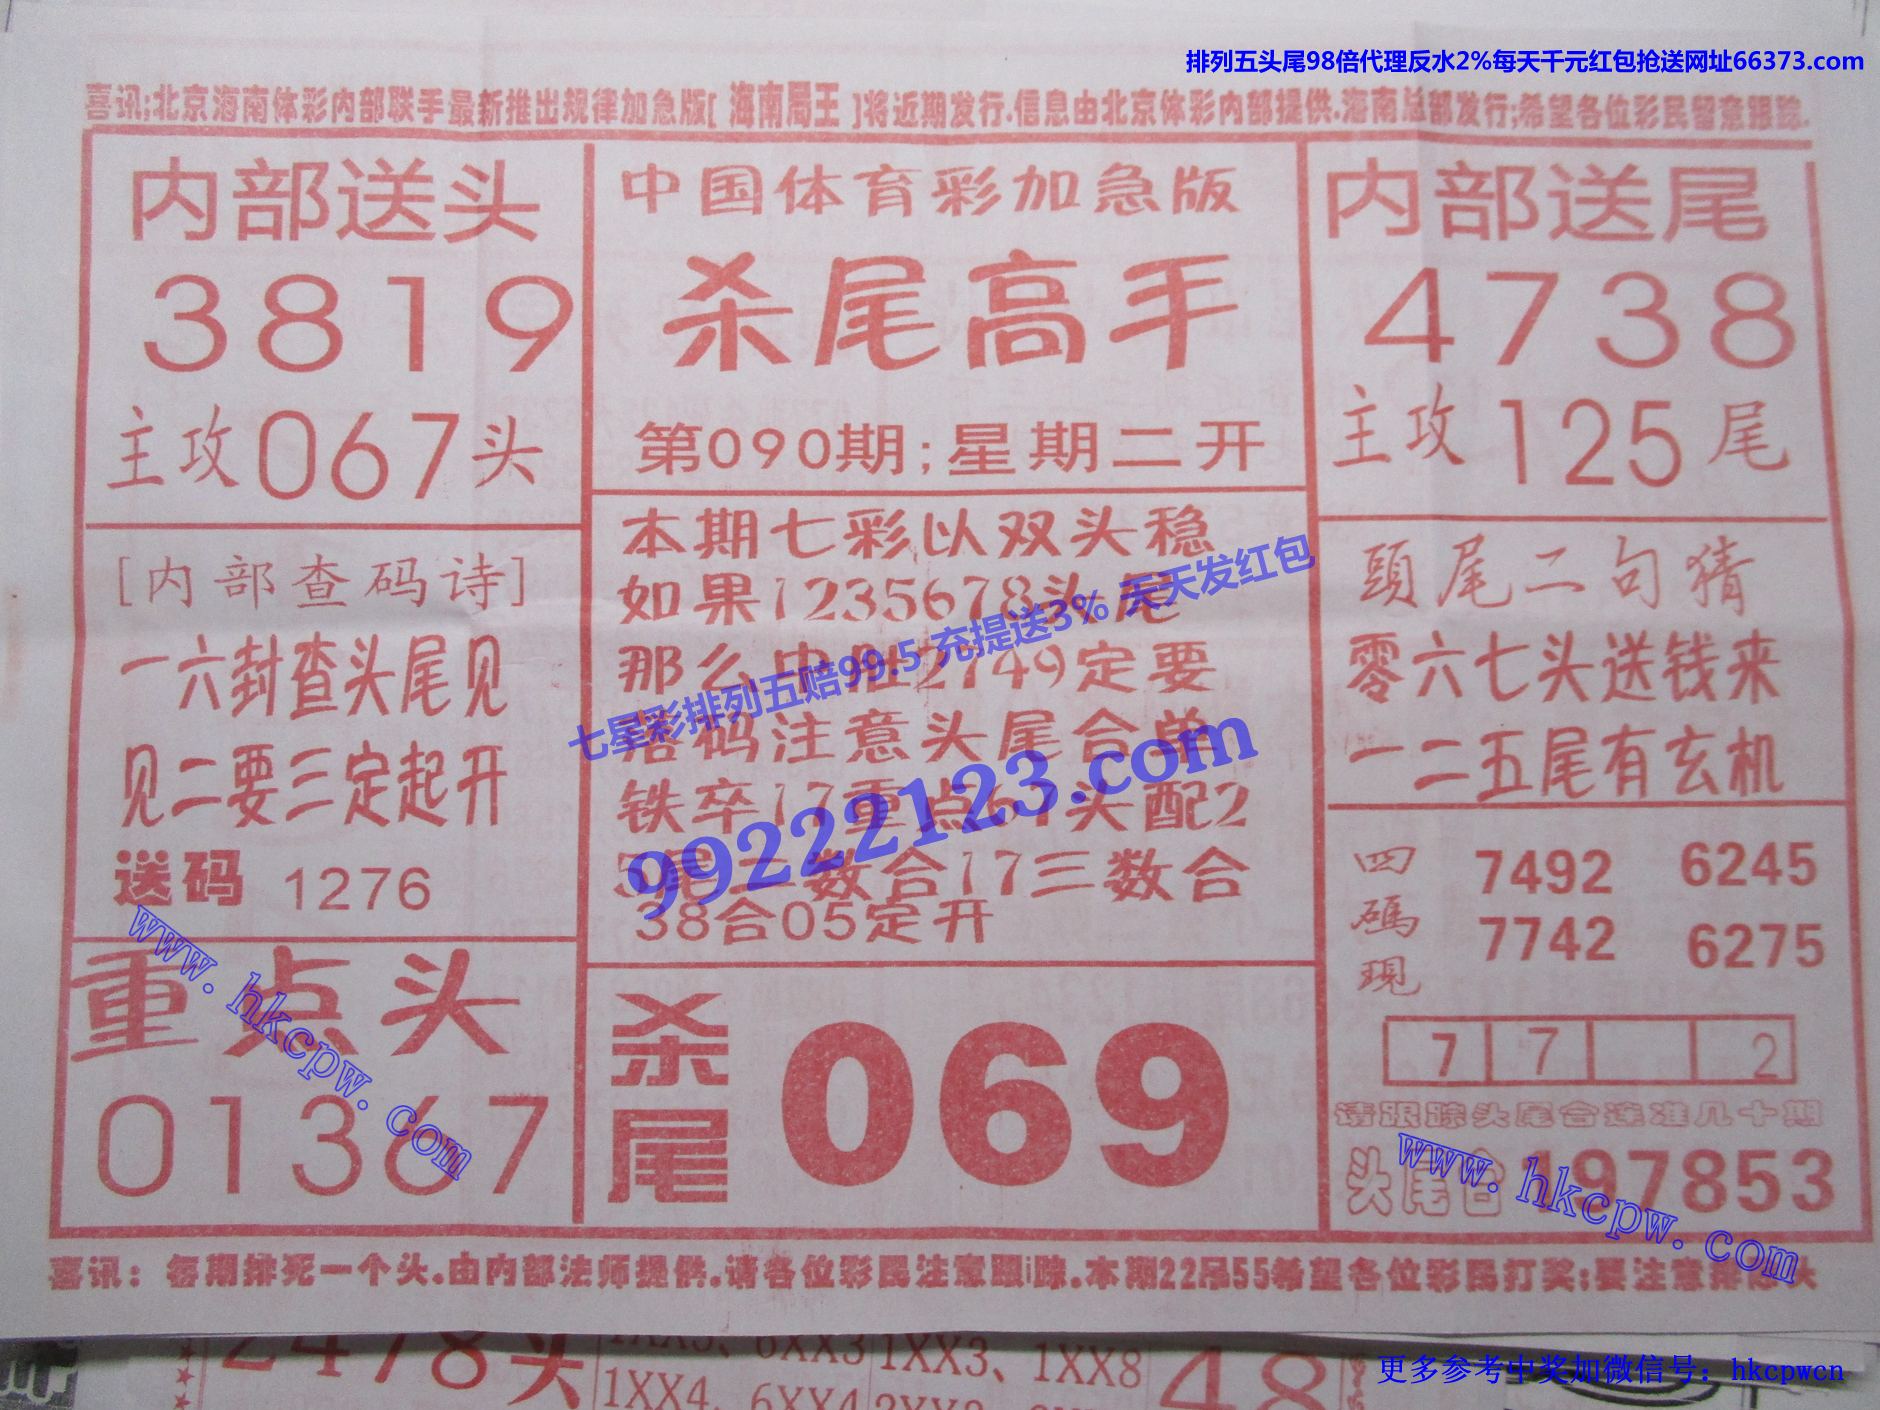 排列五头尾98倍代理反水2%每天千元红包抢送网址66373.com
喜讯;北京海南体彩内部联手最新推出规律加急版[ 海南局王 ]将近期发行.信息由北京体彩内部提供.海南总部发行;希望各位彩民留意跟踪.
内部送头
3819
主攻067头
中国体育彩加急版
杀尾高手
第090期;星期二开
内部送尾
4738
主攻125尾
[内部查码诗]
一六封查头尾见
见二要三定起开
送码 1276
本期七彩以双头稳
如果1235678头尾
那么中肚2749定要
落码注意头尾合单
铁卒17重点67头配2
5尾二数合17三数合
38合05定开
七星彩排列五赔99.5 充提送3% 天天发红包
99222123.com
頭尾二句猜
零六七头送钱来
一二五尾有玄机
四碼現
7492 6245
7742 6275
7 7 2
请跟踪头尾合连准几十期
头尾合 197853
重点头
01367
杀尾 069
www.hkcpw.com
www.hkcpw.com
喜讯：每期排死一个头.由内部法师提供.请各位彩民注意跟踪.本期22吊55希望各位彩民打奖;要注意排除头
2478头
1XX3、6XX3
1XX3、1XX8
1XX4、6XX4
48
更多参考中奖加微信号：hkcpwcn